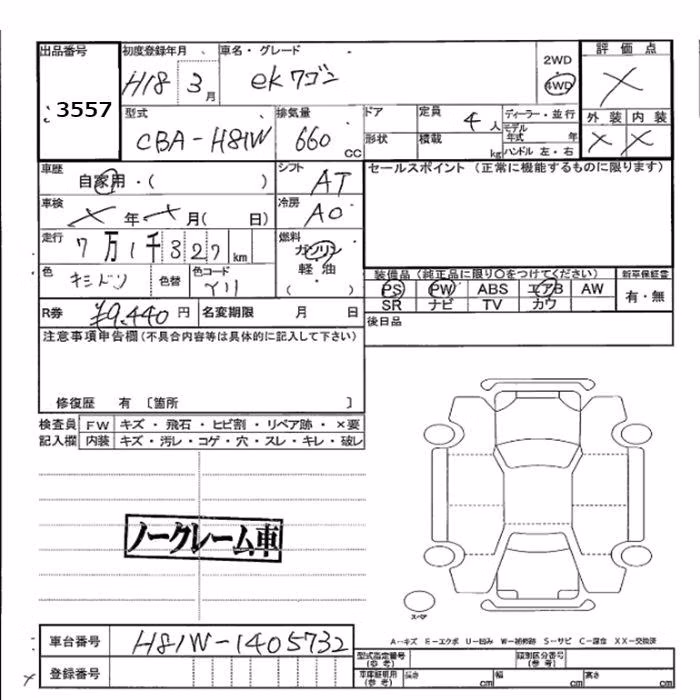 出品番号 初度登録年月 車名・グレード 2WD 4WD 評価点
3557 H18 3月 ekワゴン ×
型式 排気量 ドア 定員 4人 ディーラー・並行 外装 内装
CBA-H81W 660cc 形状 積載 kg モデル年式 年 ハンドル 左・右 × ×
車歴 自家用・( ) シフト AT セールスポイント (正常に機能するものに限ります)
車検 ×年×月( 日) 冷房 AC
走行 7万1千327km 燃料 ガソリン 軽油 ( ・ )
色 キミドリ 色替 色コード 装備品 (純正品に限り○をつけてください) 新車保証書
PS PW ABS エアB AW 有・無
SR ナビ TV カワ
R券 ¥9,440円 名変期限 月 日 後日品
注意事項申告欄(不具合内容等は具体的に記入して下さい)
修復歴 有 〔箇所 〕
検査員記入欄 FW キズ・飛石・ヒビ割・リペア跡・×要
内装 キズ・汚レ・コゲ・穴・スレ・キレ・破レ
ノークレーム車
スペア
A-キズ E-エクボ U-凹み W-補修跡 S-サビ C-腐食 XX-交換済
車台番号 H81W-1405732 型式指定番号(参考) 類別区分番号(参考)
登録番号 車庫証明用(参考) 長さ cm 幅 cm 高さ cm